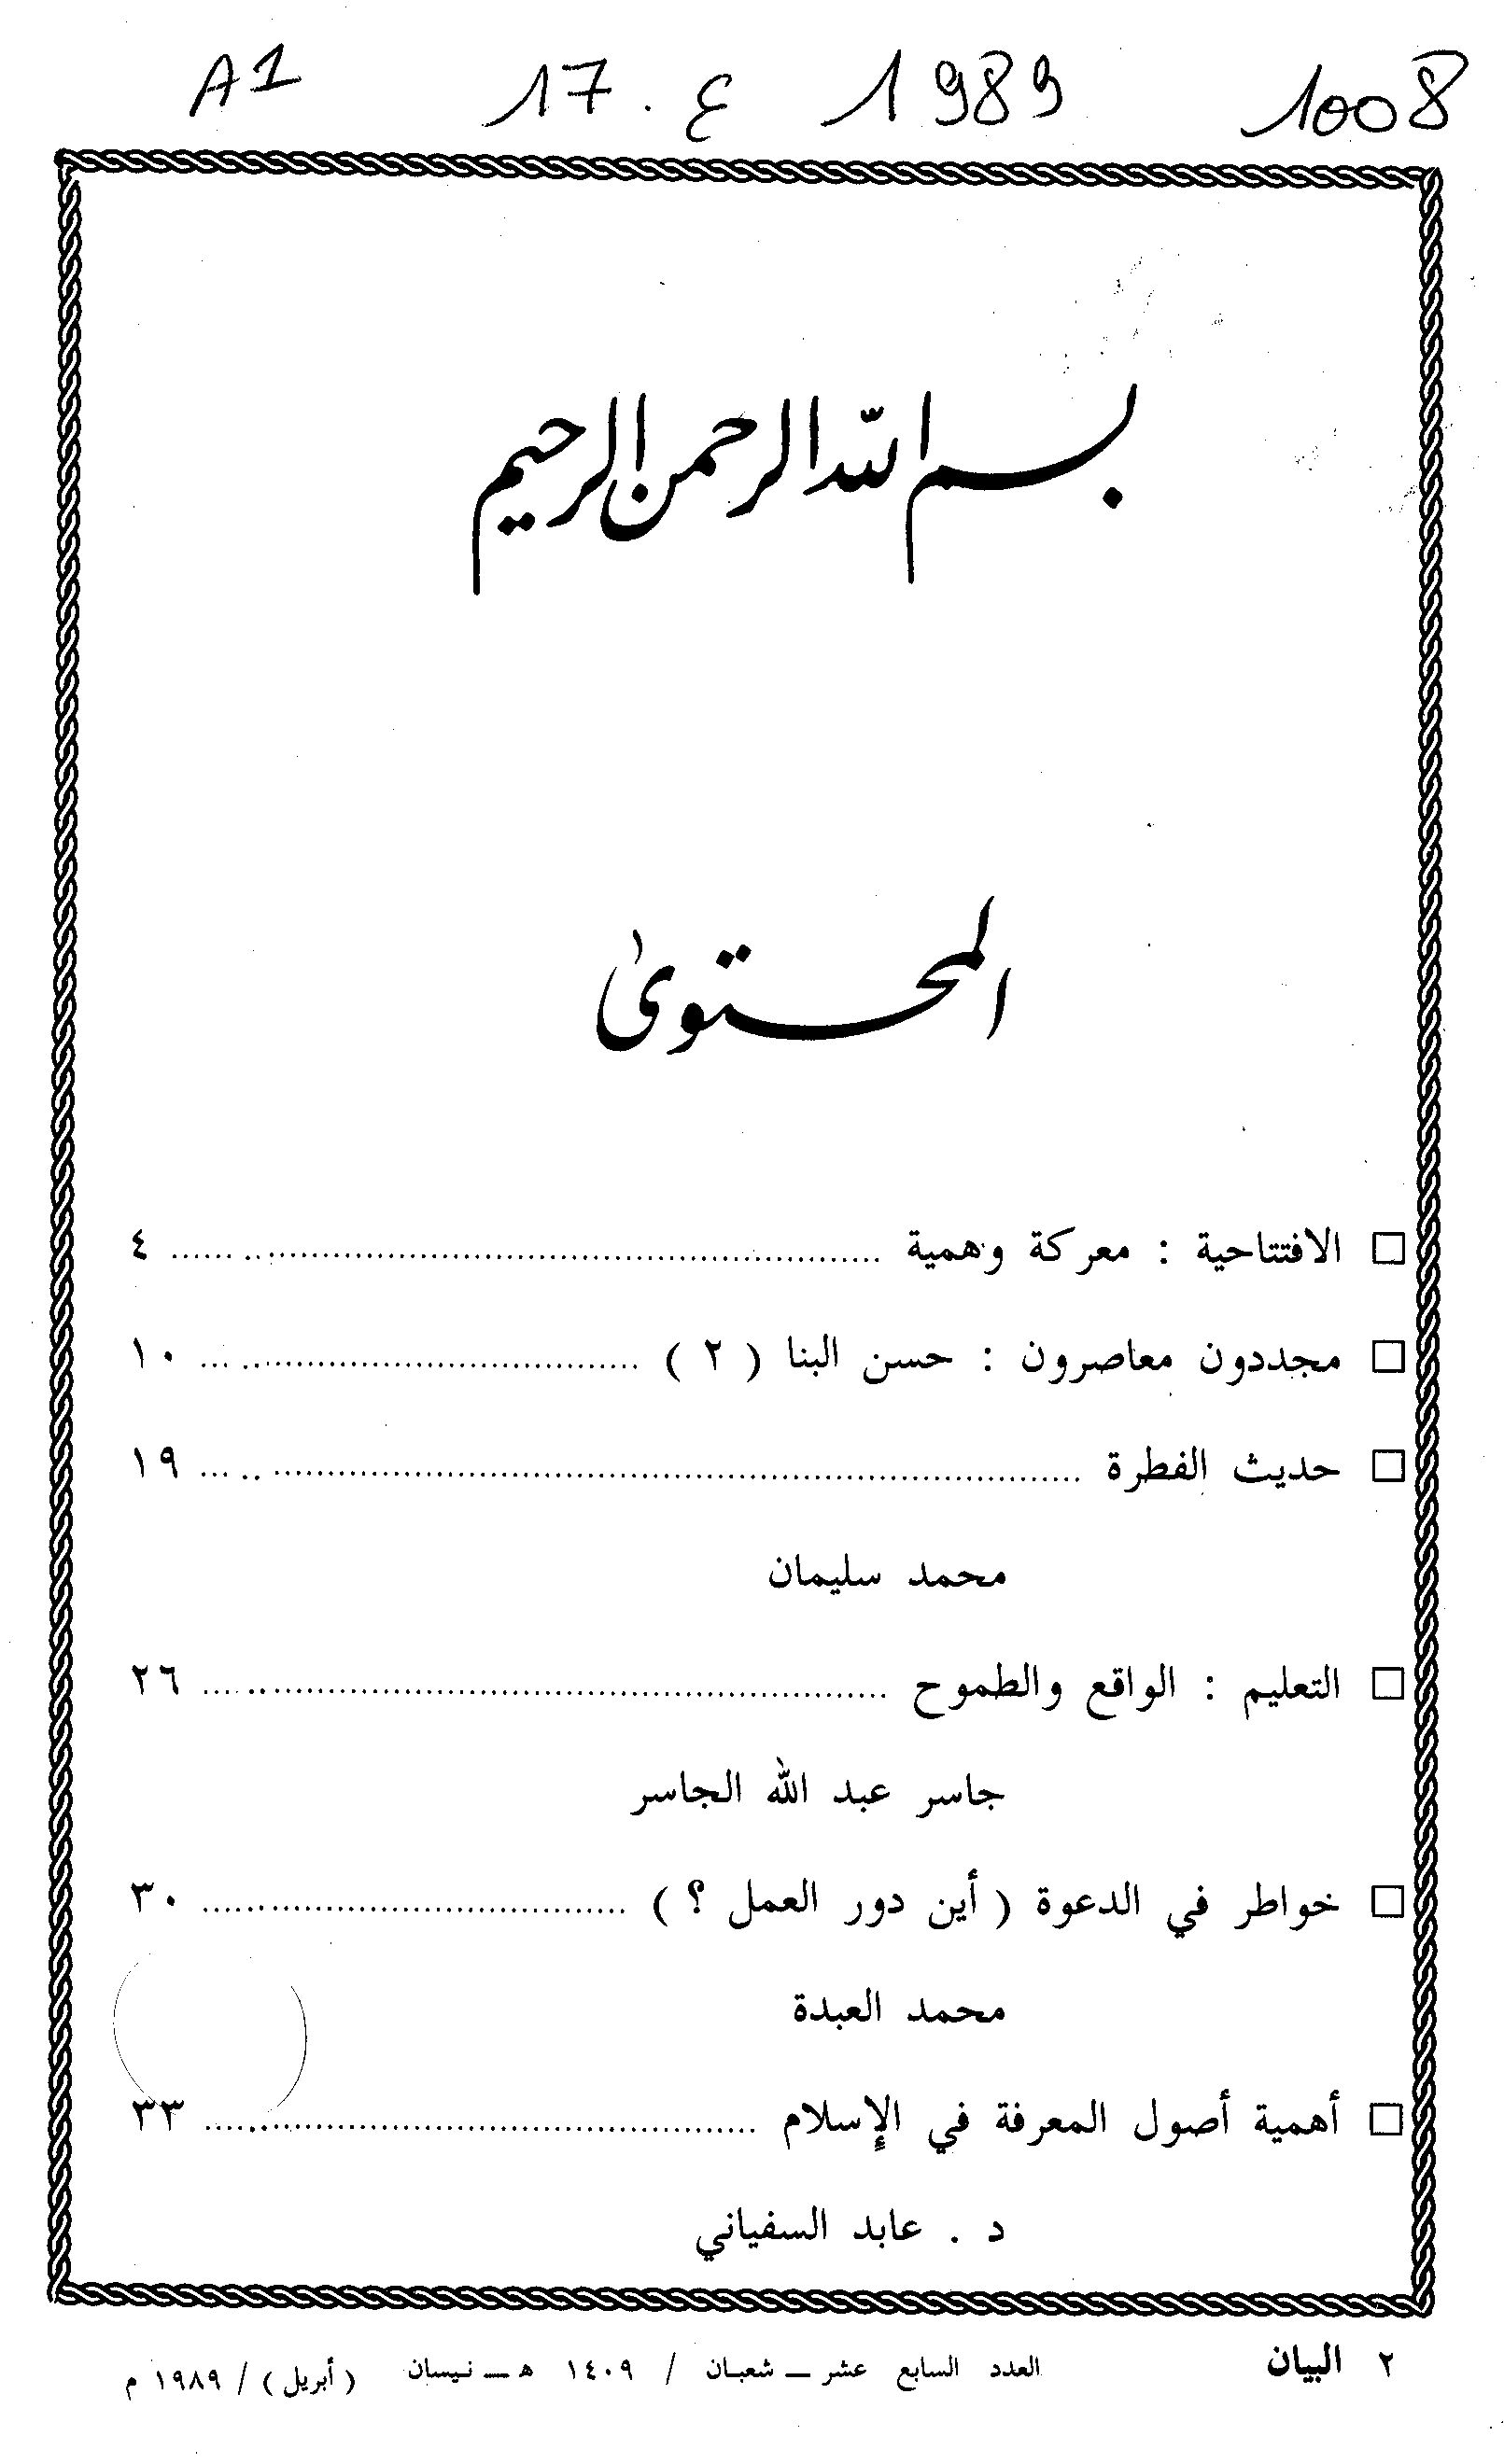 A1 17 . ع 1989 1008
بسم الله الرحمن الرحيم
المحتوى
□ الافتتاحية : معركة وهمية ........................ ٤
□ مجددون معاصرون : حسن البنا ( ٢ ) ........................ ١٠
□ حديث الفطرة ........................ ١٩
محمد سليمان
□ التعليم : الواقع والطموح ........................ ٢٦
جاسر عبد الله الجاسر
□ خواطر في الدعوة ( أين دور العمل ؟ ) ........................ ٣٠
محمد العبدة
□ أهمية أصول المعرفة في الإسلام ........................ ٣٣
د . عابد السفياني
٢ البيان العدد السابع عشر ــ شعبان / ١٤٠٩ هـ ــ نيسان ( أبريل ) / ١٩٨٩ م